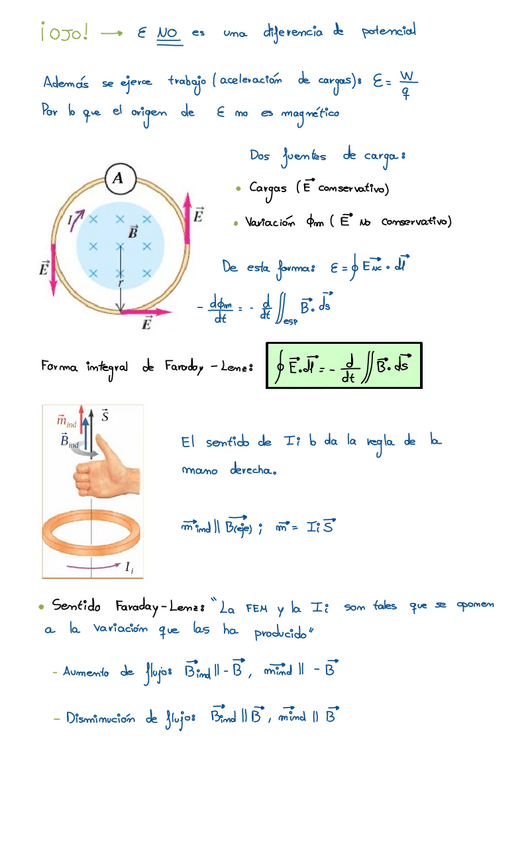 ¡OJO! → ε NO es una diferencia de potencial
Además se ejerce trabajo (aceleración de cargas): ε = W/q
Por lo que el origen de ε no es magnético
Dos fuentes de carga:
• Cargas (E⃗ conservativo)
• Variación ϕm (E⃗ No conservativo)
A
I
B⃗
E⃗
E⃗
r
E⃗
De esta forma: ε = ∮ E⃗NC · dl⃗
- dϕm/dt = - d/dt ∬esp B⃗ · ds⃗
Forma integral de Faraday-Lenz: ∮ E⃗ · dl⃗ = - d/dt ∬ B⃗ · ds⃗
m⃗ind
S⃗
B⃗ind
Ii
El sentido de Ii lo da la regla de la
mano derecha.
m⃗ind || B⃗(eje) ; m⃗ = Ii S⃗
• Sentido Faraday-Lenz: "La FEM y la Ii son tales que se oponen
a la variación que las ha producido"
- Aumento de flujo: B⃗ind || -B⃗, m⃗ind || -B⃗
- Disminución de flujo: B⃗ind || B⃗, m⃗ind || B⃗